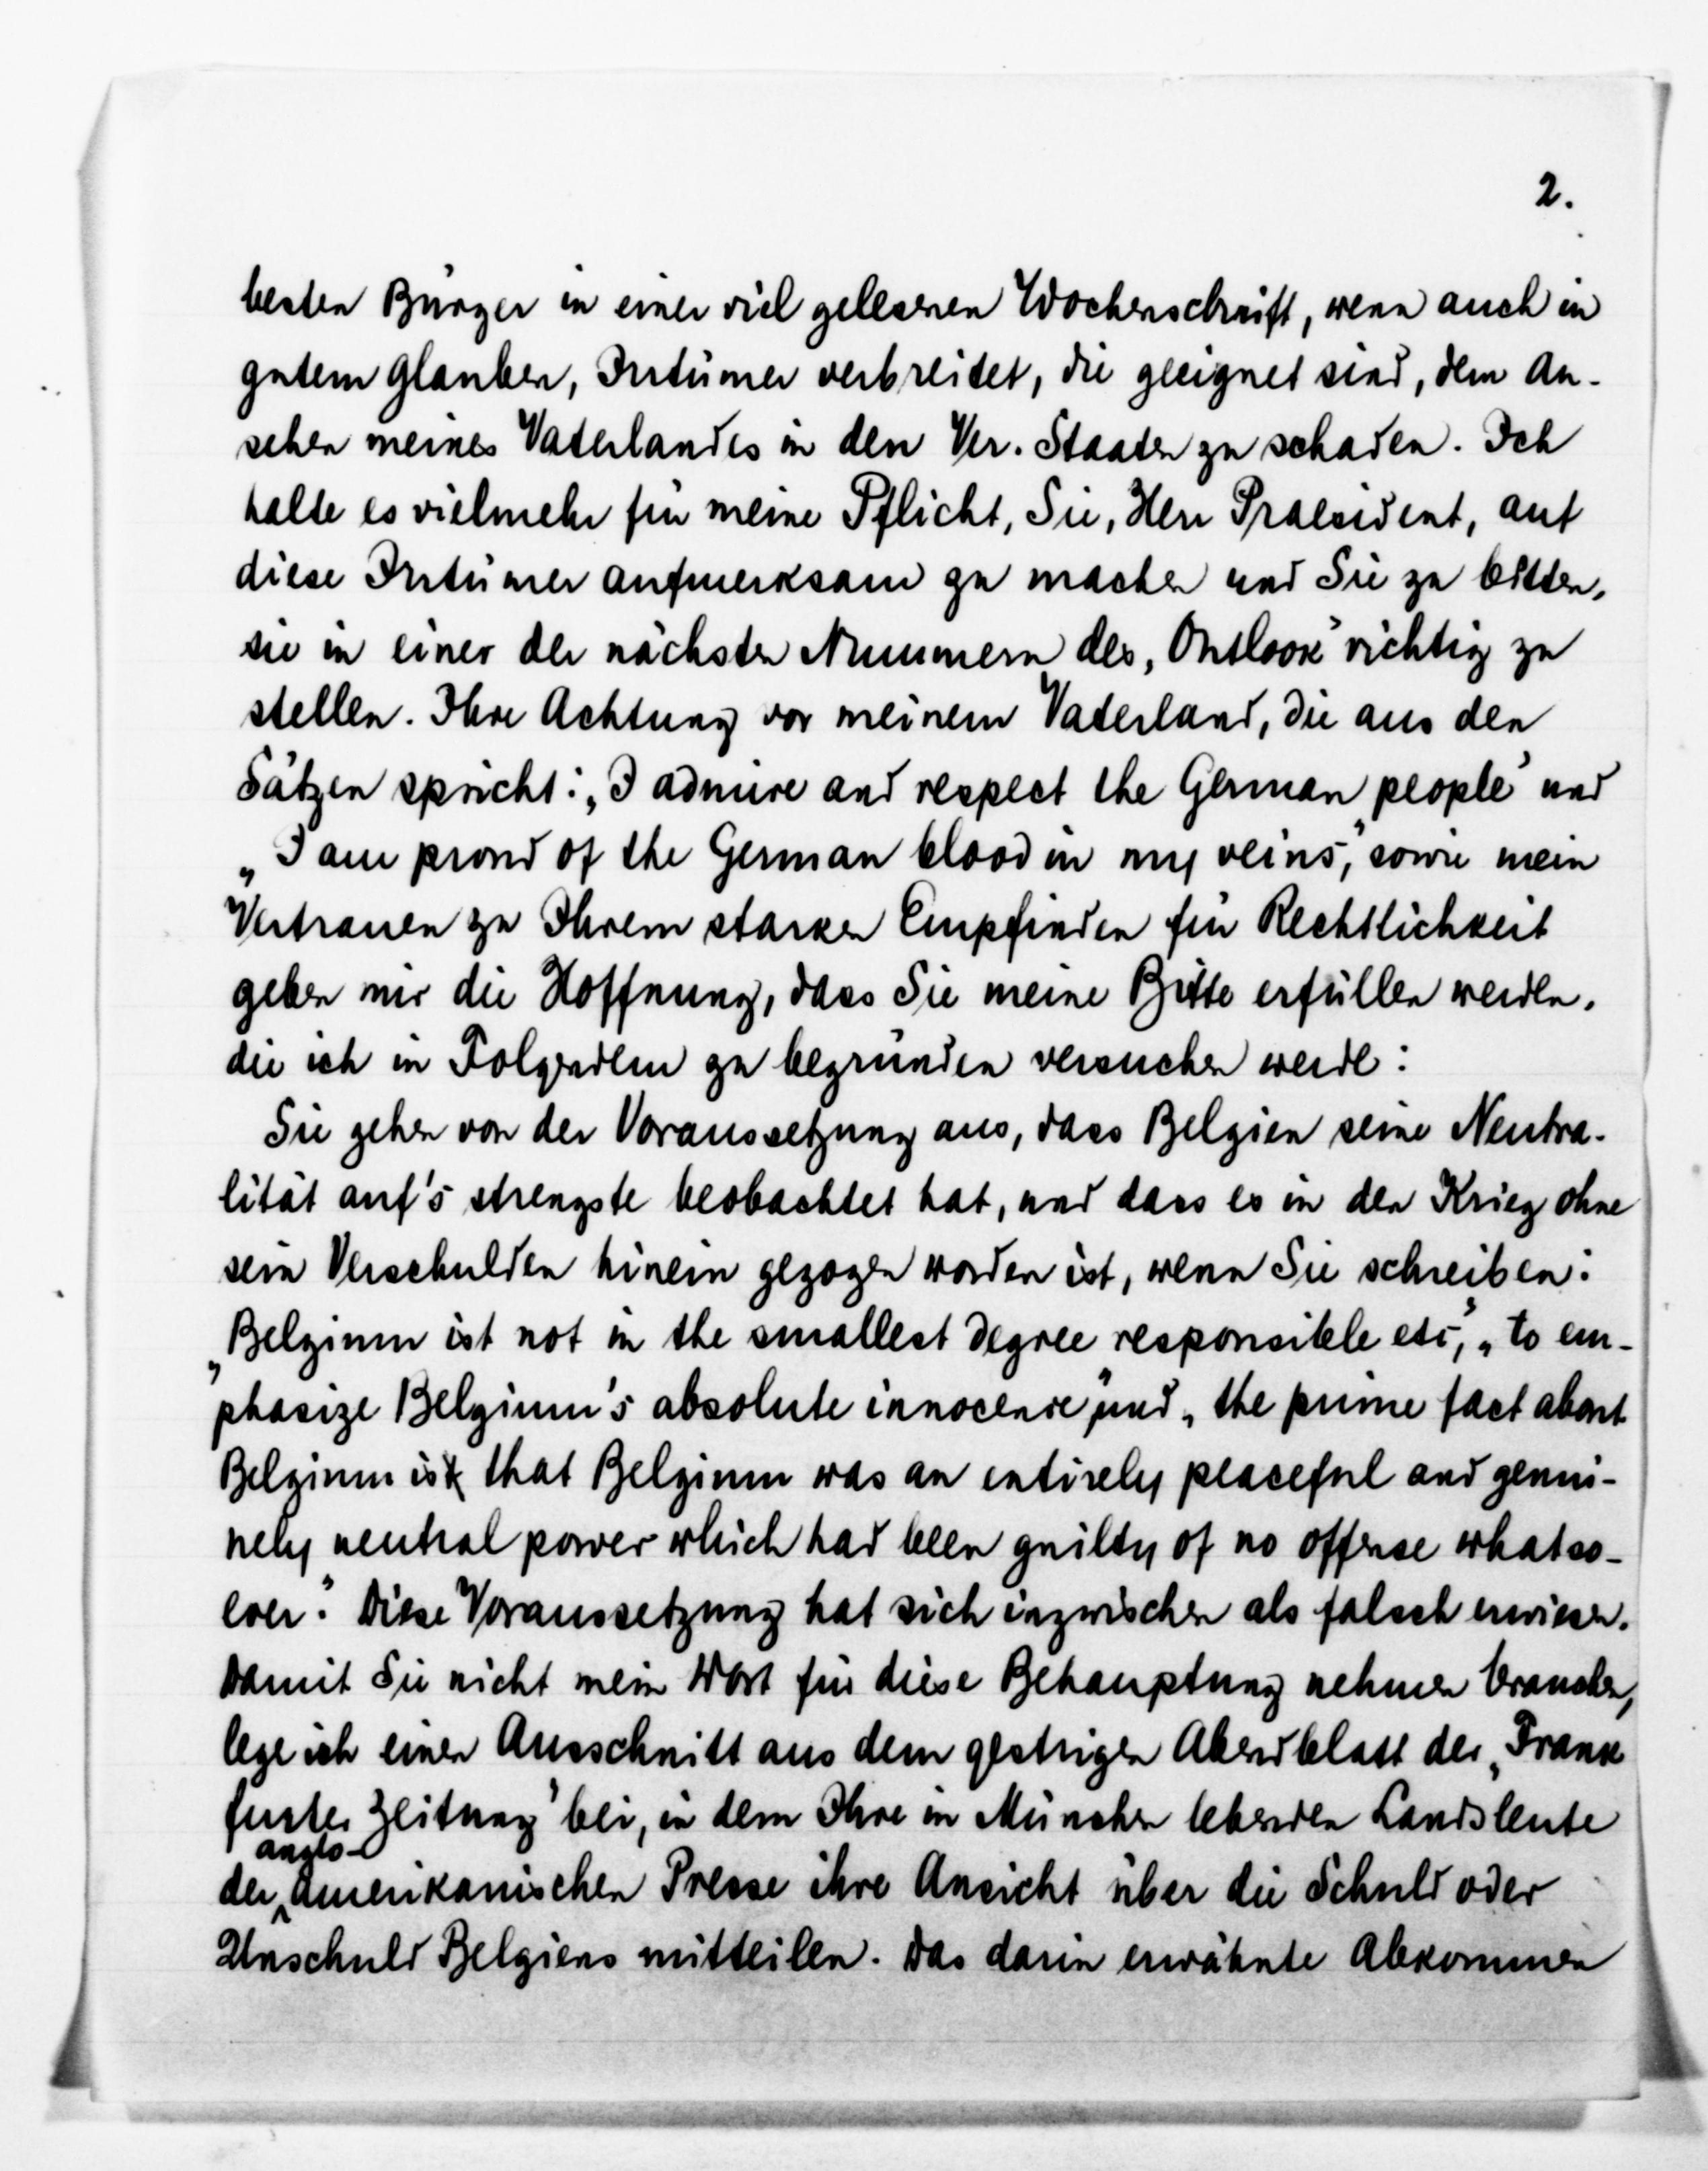 2.
besten Bürger in einer viel gelesenen Wochenschrift, wenn auch in
gutem Glauben, Irrtümer verbreitet, die geeignet sind, dem An-
sehen meines Vaterlandes in den Ver. Staaten zu schaden. Ich
halte es vielmehr für meine Pflicht, Sie, Herr Praesident, auf
diese Irrtümer aufmerksam zu machen und Sie zu bitten,
sie in einer der nächsten Nummern des „Outlook" richtig zu
stellen. Ihre Achtung vor meinem Vaterland, die aus den
Sätzen spricht: „I admire and respect the German people" und
„I am proud of the German blood in my veins", sowie mein
Vertrauen zu Ihrem starken Empfinden für Rechtlichkeit
geben mir die Hoffnung, dass Sie meine Bitte erfüllen werden,
die ich in Folgendem zu begründen versuchen werde:
Sie gehen von der Voraussetzung aus, dass Belgien seine Neutra-
lität auf's strengste beobachtet hat, und dass es in den Krieg ohne
sein Verschulden hinein gezogen worden ist, wenn Sie schreiben:
„Belgium ist not in the smallest degree responsible etc", „to em-
phasize Belgium's absolute innocence" und „the prime fact about
Belgium is that Belgium was an entirely peaceful and genui-
nely neutral power which had been guilty of no offense whatso-
ever". Diese Voraussetzung hat sich inzwischen als falsch erwiesen.
Damit Sie nicht mein Wort für diese Behauptung nehmen brauchen,
lege ich einen Ausschnitt aus dem gestrigen Abendblatt der „Frank
furter Zeitung" bei, in dem Ihre in München lebenden Landsleute
anglo-
der amerikanischen Presse ihre Ansicht über die Schuld oder
Unschuld Belgiens mitteilen. Das darin erwähnte Abkommen